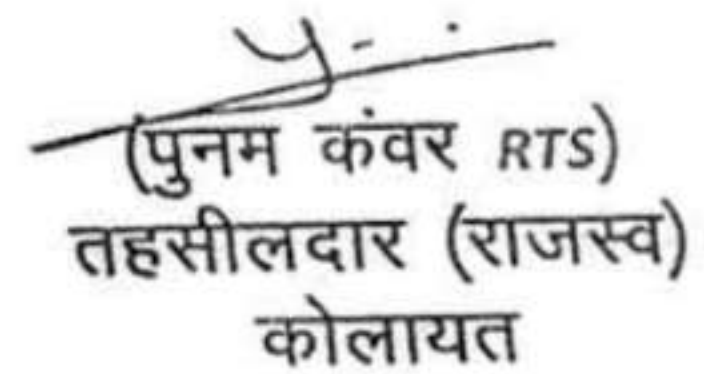 (पुनम कंवर RTS)
तहसीलदार (राजस्व)
कोलायत